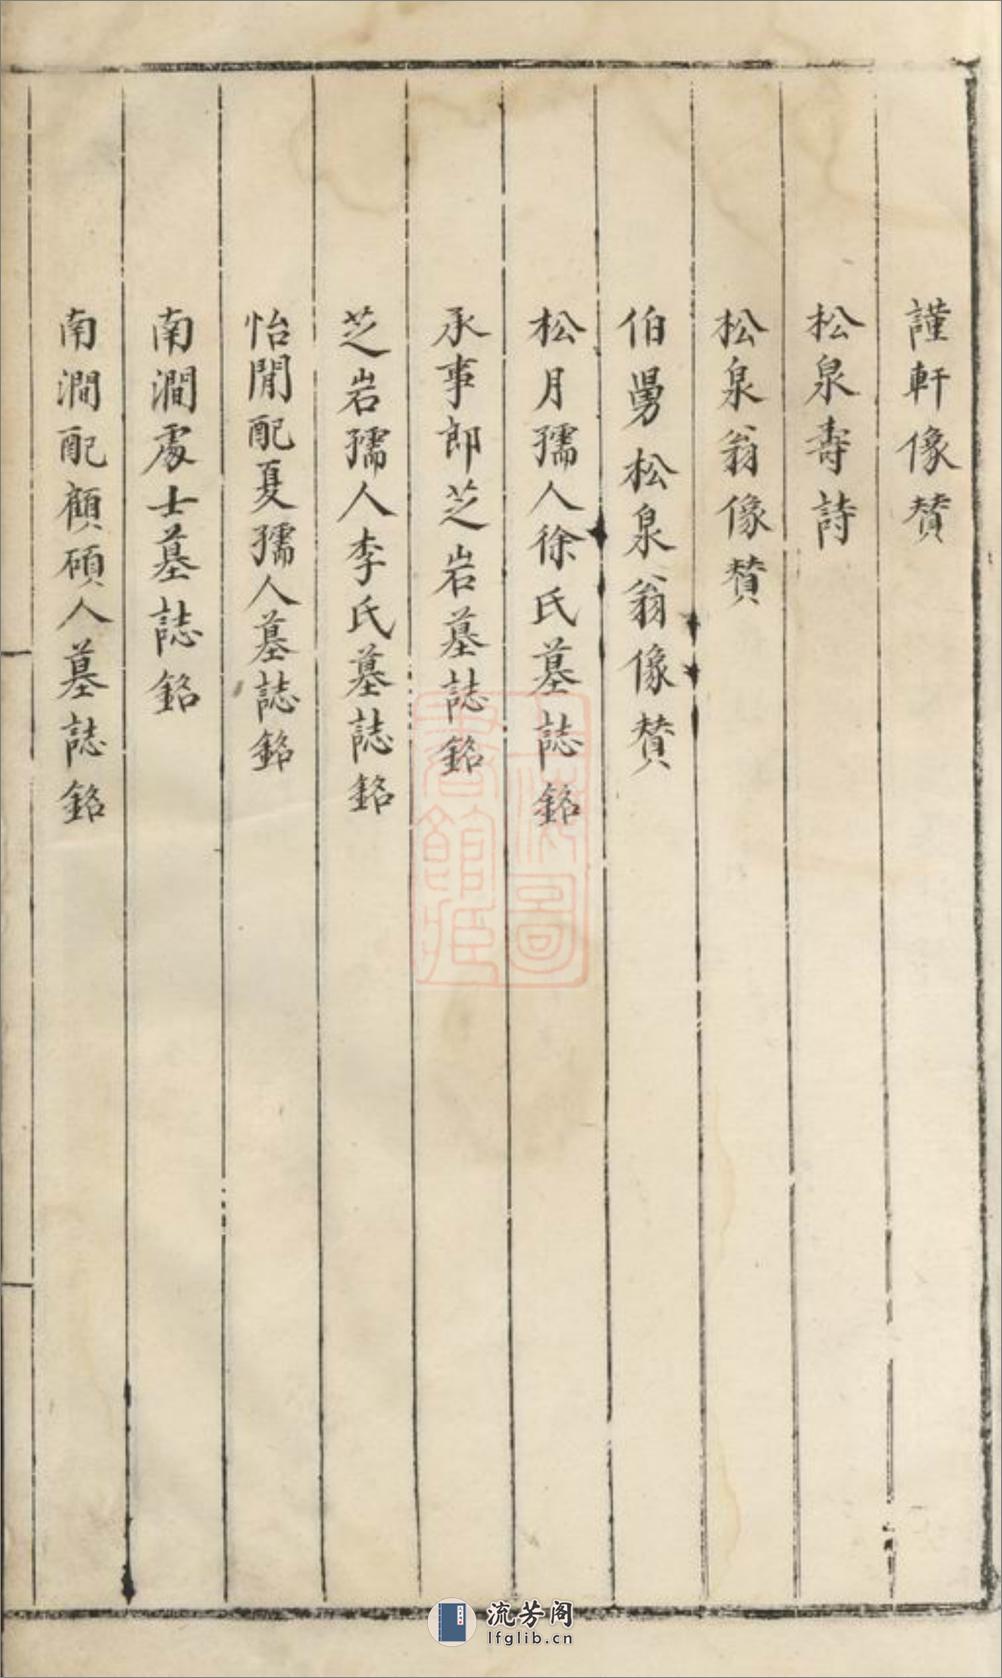 謹軒像贊
松泉壽詩
松泉翁像贊
伯舅松泉翁像贊
松月孺人徐氏墓誌銘
承事郎芝岩墓誌銘
芝岩孺人李氏墓誌銘
怡閒配夏孺人墓誌銘
南澗處士墓誌銘
南澗配顧碩人墓誌銘
上海圖書館藏
流芳阁
lfglib.cn